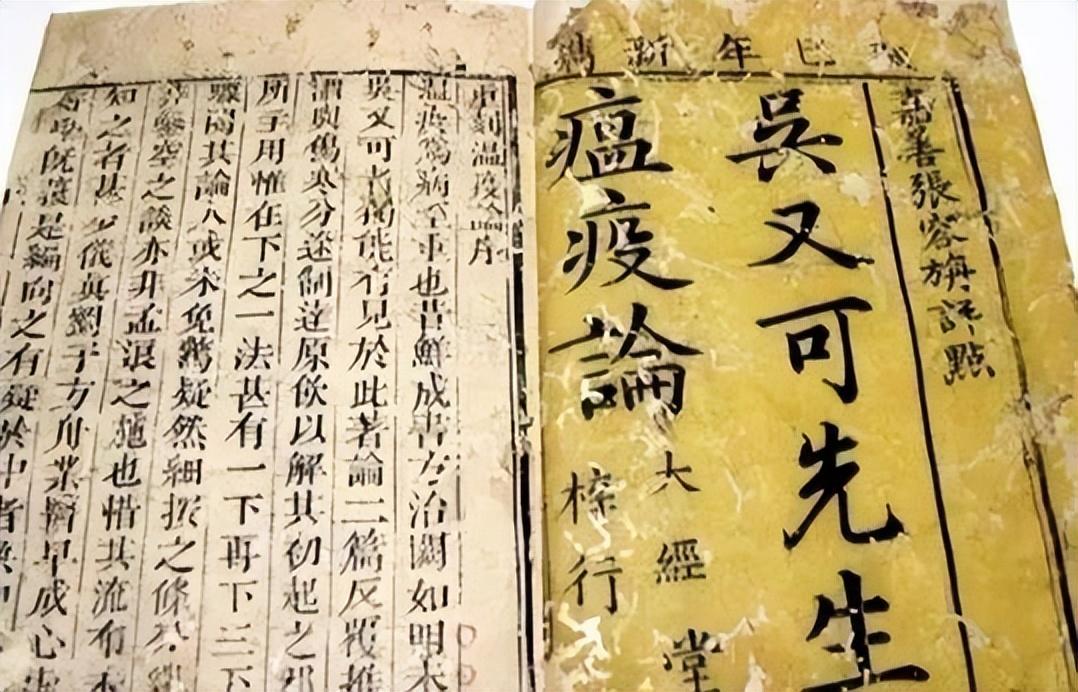 巳年新鐫
嘉善張容旃評點
吳又可先生
瘟疫論
大經堂
梓行
重刻溫疫論序
溫疫為病至重也昔鮮成書方治闕如明末
吳又可獨能有見於此著論二篇反覆推
與傷寒分途制達原飲以解其初起之邪
所予用惟在下之一法甚有一下再下三下
驟閱其論人或未免驚疑然細按之條分縷
非鑿空之談亦非孟浪之施也惜其流布未
知之者甚少儀真劉子方舟業醫早成心
既讀是編向之有疑於中者無